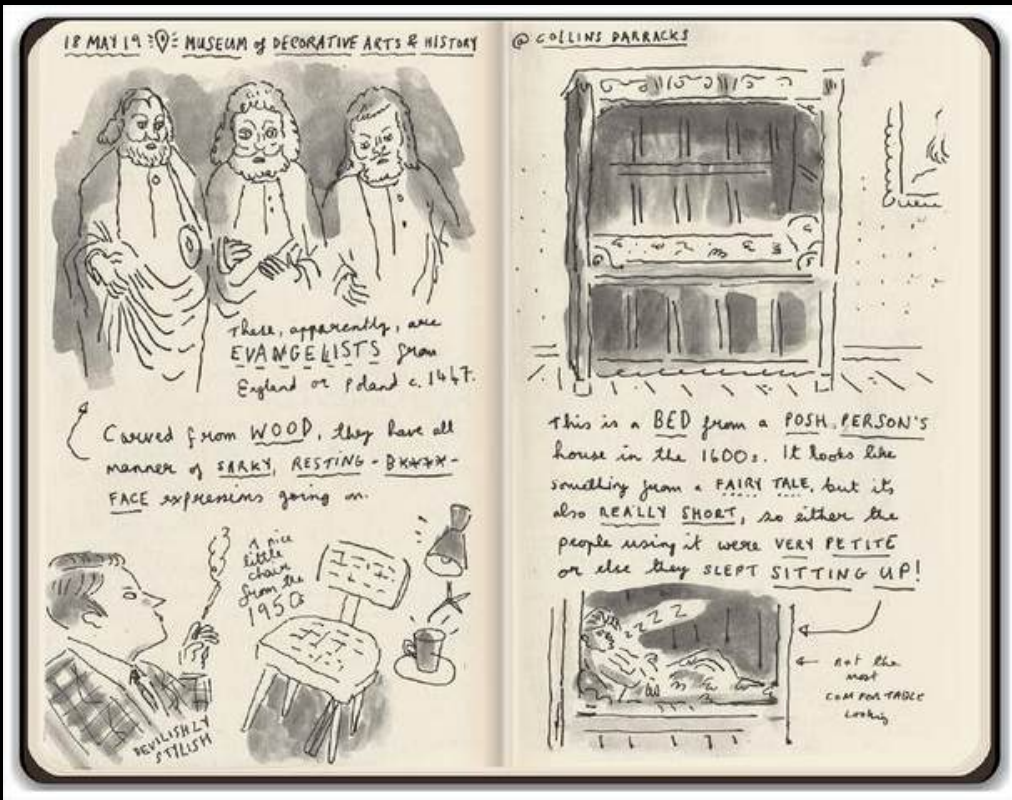 18 MAY 19 MUSEUM of DECORATIVE ARTS & HISTORY
These, apparently, are
EVANGELISTS from
England or Poland c. 1447.
Carved from WOOD, they have all
manner of SARKY, RESTING-B****-
FACE expressions going on.
A nice
little
chair
from the
1950s
DEVILISHLY
STYLISH
@ COLLINS BARRACKS
This is a BED from a POSH PERSON'S
house in the 1600s. It looks like
something from a FAIRY TALE, but it's
also REALLY SHORT, so either the
people using it were VERY PETITE
or else they SLEPT SITTING UP!
ZZZZ
not the
most
COMFORTABLE
looking